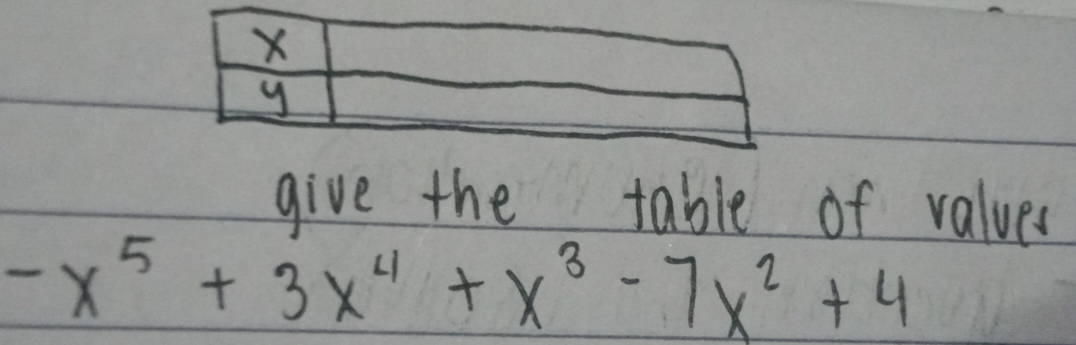 x
y
give the table of values
-x⁵ + 3x⁴ + x³ - 7x² + 4